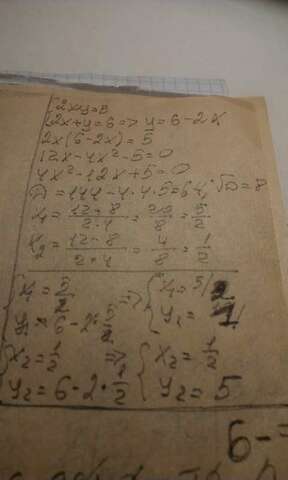 2xy=5
2x+y=6=>y=6-2x
2x(6-2x)=5
12x-4x²-5=0
4x²-12x+5=0
D=144-4·4·5=64; √D=8
x₁=12+8/2·4=20/8=5/2
x₂=12-8/2·4=4/8=1/2
x₁=5/2 => x₁=5/2
y₁=6-2·5/2 y₁=1
x₂=1/2 => x₂=1/2
y₂=6-2·1/2 y₂=5
6-=